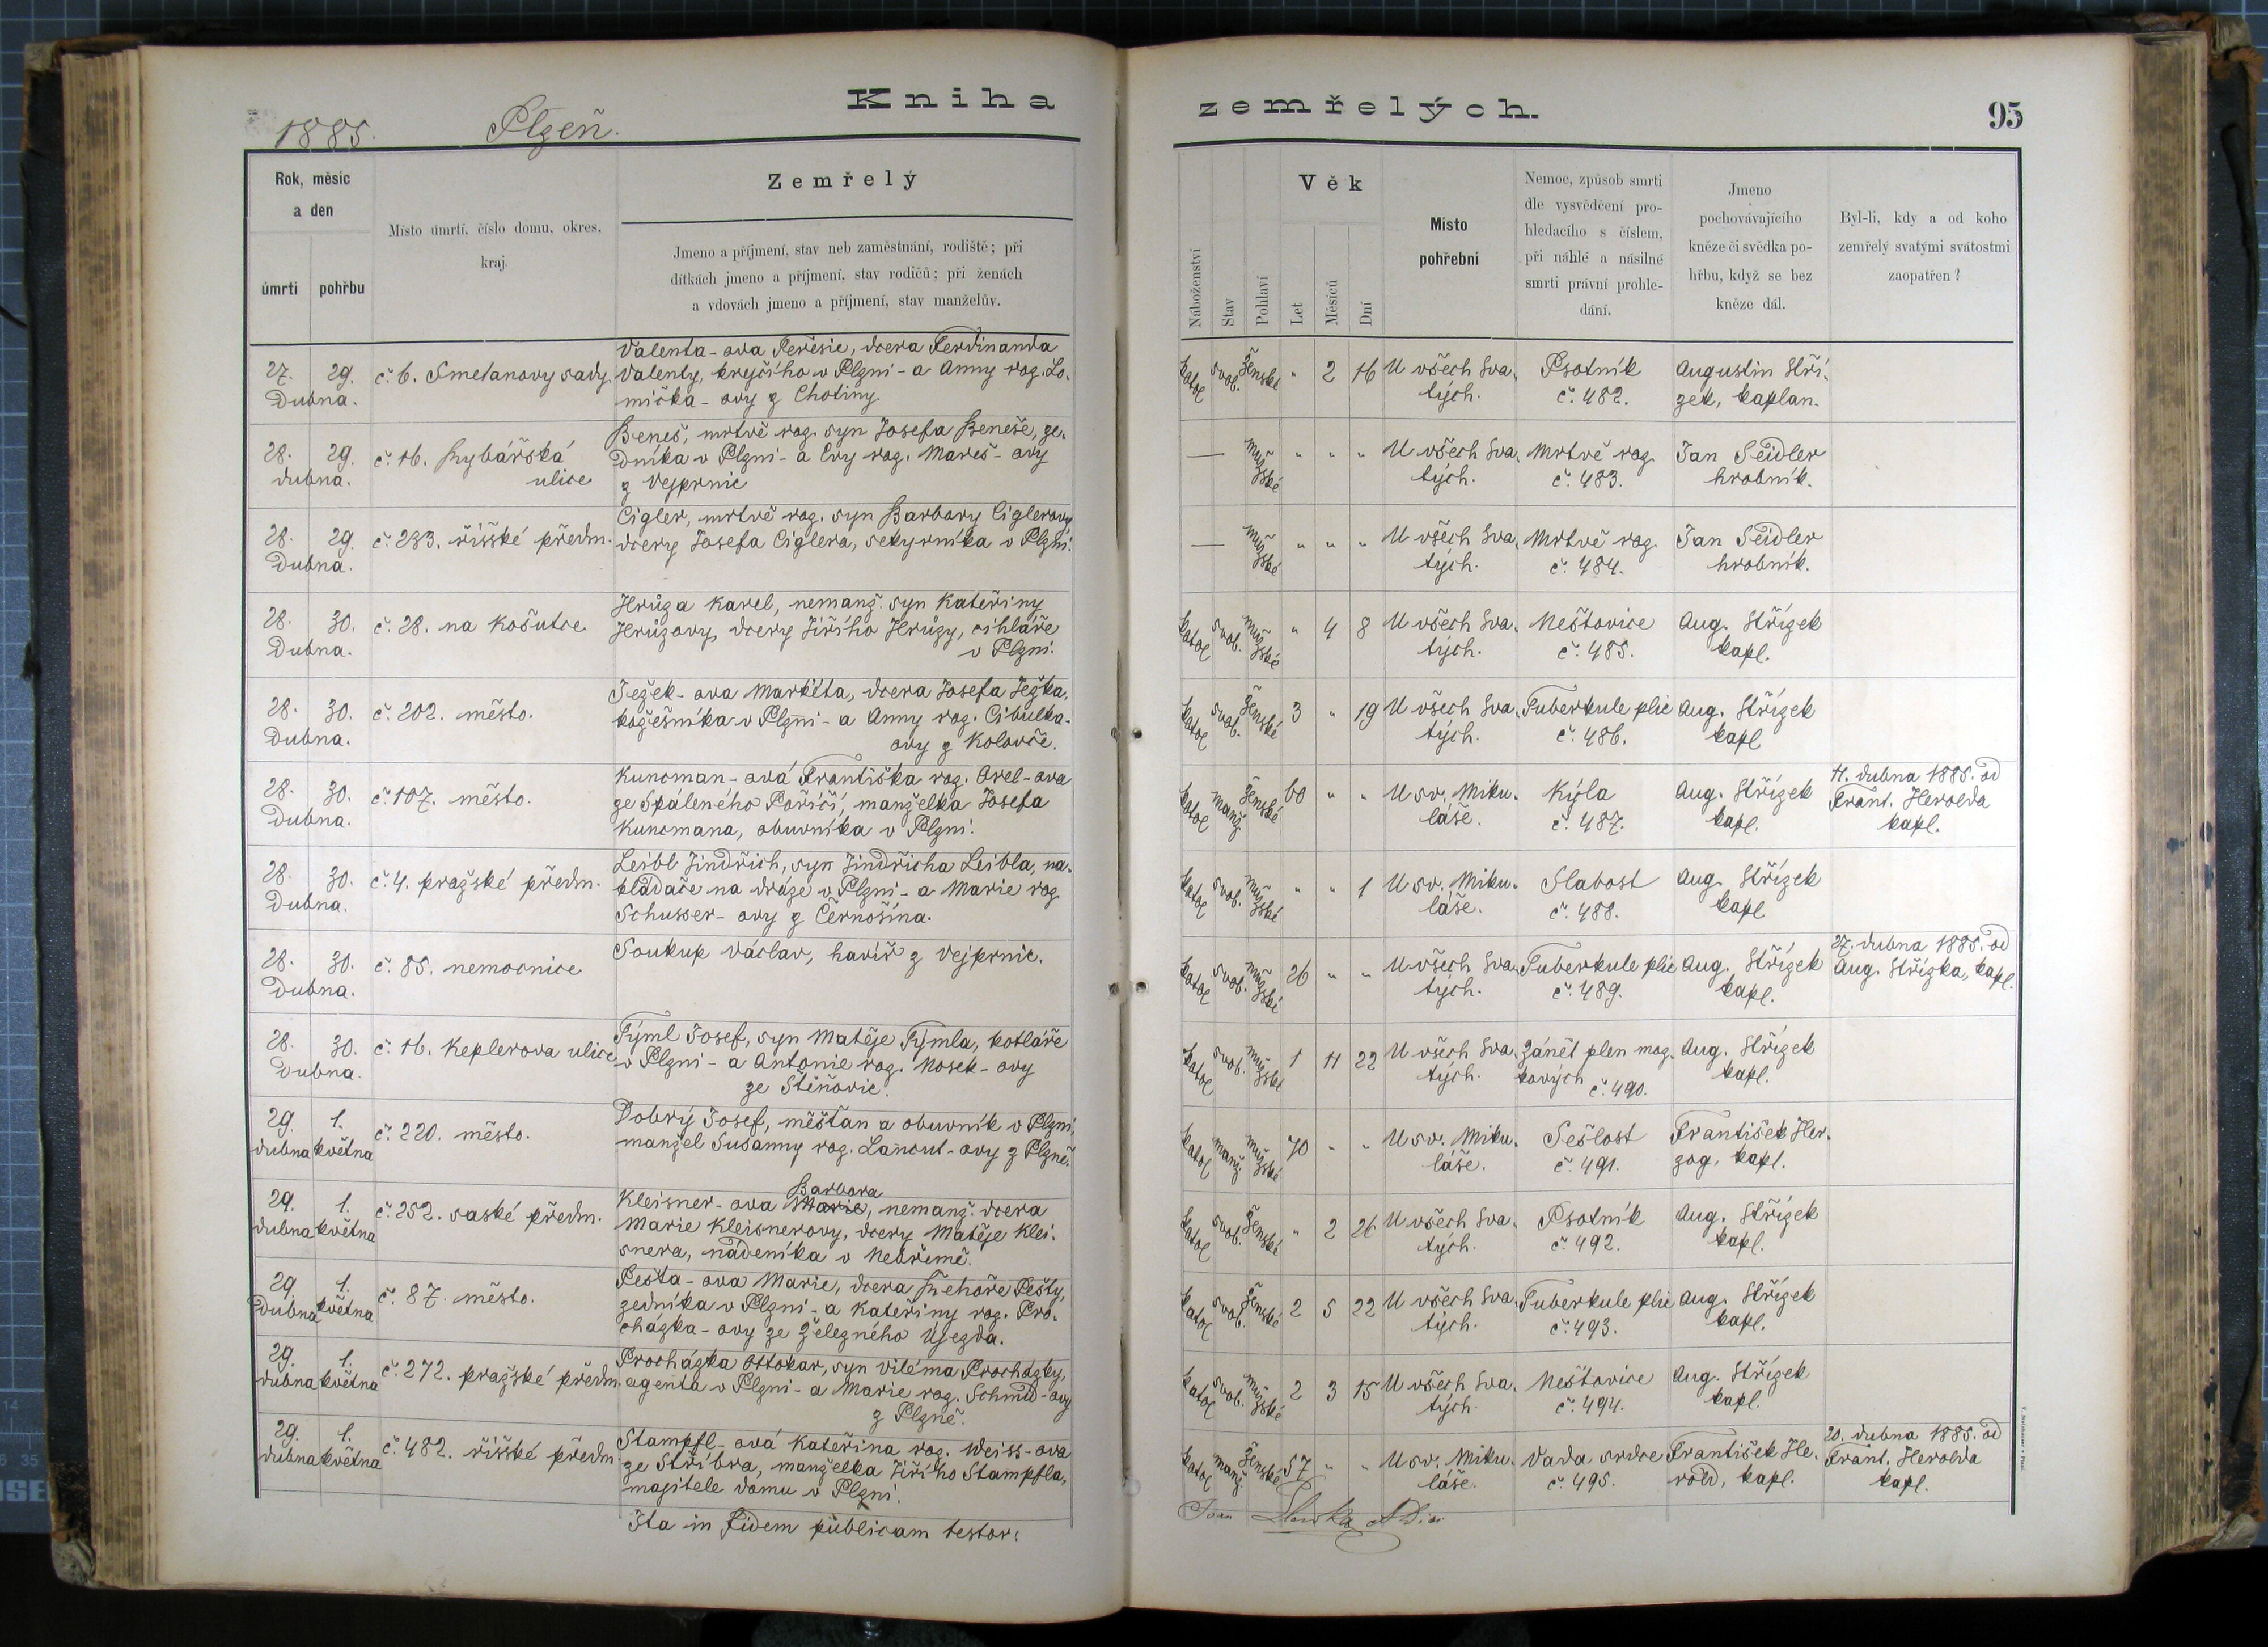 Kniha zemřelých.
95
1885. Plzeň.
Rok, měsíc
a den
úmrtí
pohřbu
Místo úmrtí, číslo domu, okres,
kraj.
Zemřelý
Jmeno a příjmení, stav neb zaměstnání, rodiště; při
dítkách jmeno a příjmení, stav rodičů; při ženách
a vdovách jmeno a příjmení, stav manželův.
Náboženství
Stav
Pohlaví
Věk
Let
Měsíců
Dní
Místo
pohřební
Nemoc, způsob smrti
dle vysvědčení pro-
hledacího s číslem,
při náhlé a násilné
smrti právní prohle-
dání.
Jmeno
pochovávajícího
kněze či svědka po-
hřbu, když se bez
kněze dál.
Byl-li, kdy a od koho
zemřelý svatými svátostmi
zaopatřen?
27. 29.
Dubna.
č. 6. Smetanovy sady.
Valenta-ova Teresie, dcera Ferdinanda
Valenty, krejčího v Plzni- a Anny roz. Lo-
mička-ovy z Chotiny.
katol svob. ženské " 2 16
U všech Sva-
tých.
Psotník
č. 482.
Augustin Stří-
zek, kaplan.
28. 29.
dubna.
č. 16. Rybářská
ulice
Beneš, mrtvě roz. syn Josefa Beneše, ze-
dníka v Plzni- a Evy roz. Mareš-ovy
z Vejprnic
— muž-
ské " " "
U všech Sva-
tých.
Mrtvě roz
č. 483.
Jan Seidler
hrobník.
28. 29.
Dubna.
č. 233. říšské předm.
Cigler, mrtvě roz. syn Barbory Ciglerovy,
dcery Josefa Ciglera, sekyrníka v Plzni.
— muž-
ské " " "
U všech Sva-
tých.
Mrtvě roz
č. 484.
Jan Seidler
hrobník.
28. 30.
Dubna.
č. 28. na Košutce
Hrůza Karel, nemanž. syn Kateřiny
Hrůzovy, dcery Jiřího Hrůzy, cihláře
v Plzni.
katol svob. muž-
ské " 4 8
U všech Sva-
tých.
Neštovice
č. 485.
Aug. Střízek
kapl.
28. 30.
Dubna.
č. 202. město.
Ježek-ova Markéta, dcera Josefa Ježka,
kožešníka v Plzni- a Anny roz. Cibulka-
ovy z Kolovče.
katol svob. ženské 3 " 19
U všech Sva-
tých.
Tuberkule plic
č. 486.
Aug. Střízek
kapl
28. 30.
Dubna.
č. 107. město.
Kuncman-ová Františka roz. Orel-ova
ze Spáleného Poříčí, manželka Josefa
Kuncmana, obuvníka v Plzni.
katol manž ženské 60 " "
U sv. Miku-
láše.
Kýla
č. 487.
Aug. Střízek
kapl.
11. dubna 1885. od
Frant. Herolda
kapl.
28. 30.
Dubna.
č. 4. pražské předm.
Leibl Jindřich, syn Jindřicha Leibla, na-
kladače na dráze v Plzni- a Marie roz
Schusser-ovy z Černošína.
katol svob. muž-
ské " " 1
U sv. Miku-
láše.
Slabost
č. 488.
Aug. Střízek
kapl
28. 30.
Dubna.
č. 85. nemocnice
Soukup Václav, havíř z Vejprnic.
katol svob. muž-
ské 26 " "
U všech Sva-
tých.
Tuberkule plic
č. 489.
Aug. Střízek
kapl.
27. dubna 1885. od
Aug. Střízka, kapl.
28. 30.
Dubna.
č. 16. Keplerova ulice
Týml Josef, syn Matěje Týmla, kotláře
v Plzni- a Antonie roz. Nosek-ovy
ze Štěnovic.
katol svob. mužské 1 11 22
U všech Sva-
tých.
Zánět plen moz-
kových č. 490.
Aug. Střízek
kapl.
29. 1.
dubna května
č. 220. město.
Dobrý Josef, měšťan a obuvník v Plzni,
manžel Susanny roz. Lancut-ovy z Plzně.
katol manž muž-
ské 70 " "
U sv. Miku-
láše.
Sešlost
č. 491.
František Her-
zog, kapl.
29. 1.
dubna května
č. 252. saské předm.
Barbora
Kleisner-ova Marie, nemanž. dcera
Marie Kleisnerovy, dcery Matěje Klei-
snera, nádeníka v Nebřemě.
katol svob. ženské " 2 26
U všech Sva-
tých.
Psotník
č. 492.
Aug. Střízek
kapl.
29. 1.
Dubna května
č. 87. město.
Pešta-ova Marie, dcera Řehoře Pešty,
zedníka v Plzni- a Kateřiny roz. Pro-
cházka-ovy ze Železného Újezda.
katol svob. ženské 2 5 22
U všech Sva-
tých.
Tuberkule plic
č. 493.
Aug. Střízek
kapl.
29. 1.
dubna května
č. 272. pražské předm.
Procházka Ottokar, syn Viléma Procházky,
agenta v Plzni- a Marie roz. Schmid-ovy
z Plzně.
katol svob. muž-
ské 2 3 15
U všech Sva-
tých.
Neštovice
č. 494.
Aug. Střízek
kapl.
29. 1.
dubna května
č. 482. říšské předm.
Stampfl-ová Kateřina roz. Weiss-ova
ze Stříbra, manželka Jiřího Stampfla,
majitele domu v Plzni.
katol manž. ženské 57 " "
U sv. Miku-
láše.
Vada srdce
č. 495.
František He-
rold, kapl.
20. dubna 1885. od
Frant. Herolda
kapl.
Ita in fidem publicam testor: